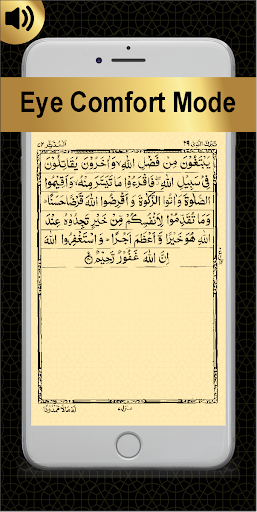 Eye Comfort Mode
تبٰرك الذی ٢٩
يَبْتَغُوْنَ مِنْ فَضْلِ اللّٰهِ ۙ وَاٰخَرُوْنَ يُقَاتِلُوْنَ
فِیْ سَبِيْلِ اللّٰهِ ۖ فَاقْرَءُوْا مَا تَيَسَّرَ مِنْهُ ۙ وَاَقِيْمُوا
الصَّلٰوةَ وَاٰتُوا الزَّكٰوةَ وَاَقْرِضُوا اللّٰهَ قَرْضًا حَسَنًا ؕ
وَمَا تُقَدِّمُوْا لِاَنْفُسِكُمْ مِّنْ خَيْرٍ تَجِدُوْهُ عِنْدَ
اللّٰهِ هُوَ خَيْرًا وَّاَعْظَمَ اَجْرًا ؕ وَاسْتَغْفِرُوا اللّٰهَ ؕ
اِنَّ اللّٰهَ غَفُوْرٌ رَّحِيْمٌ